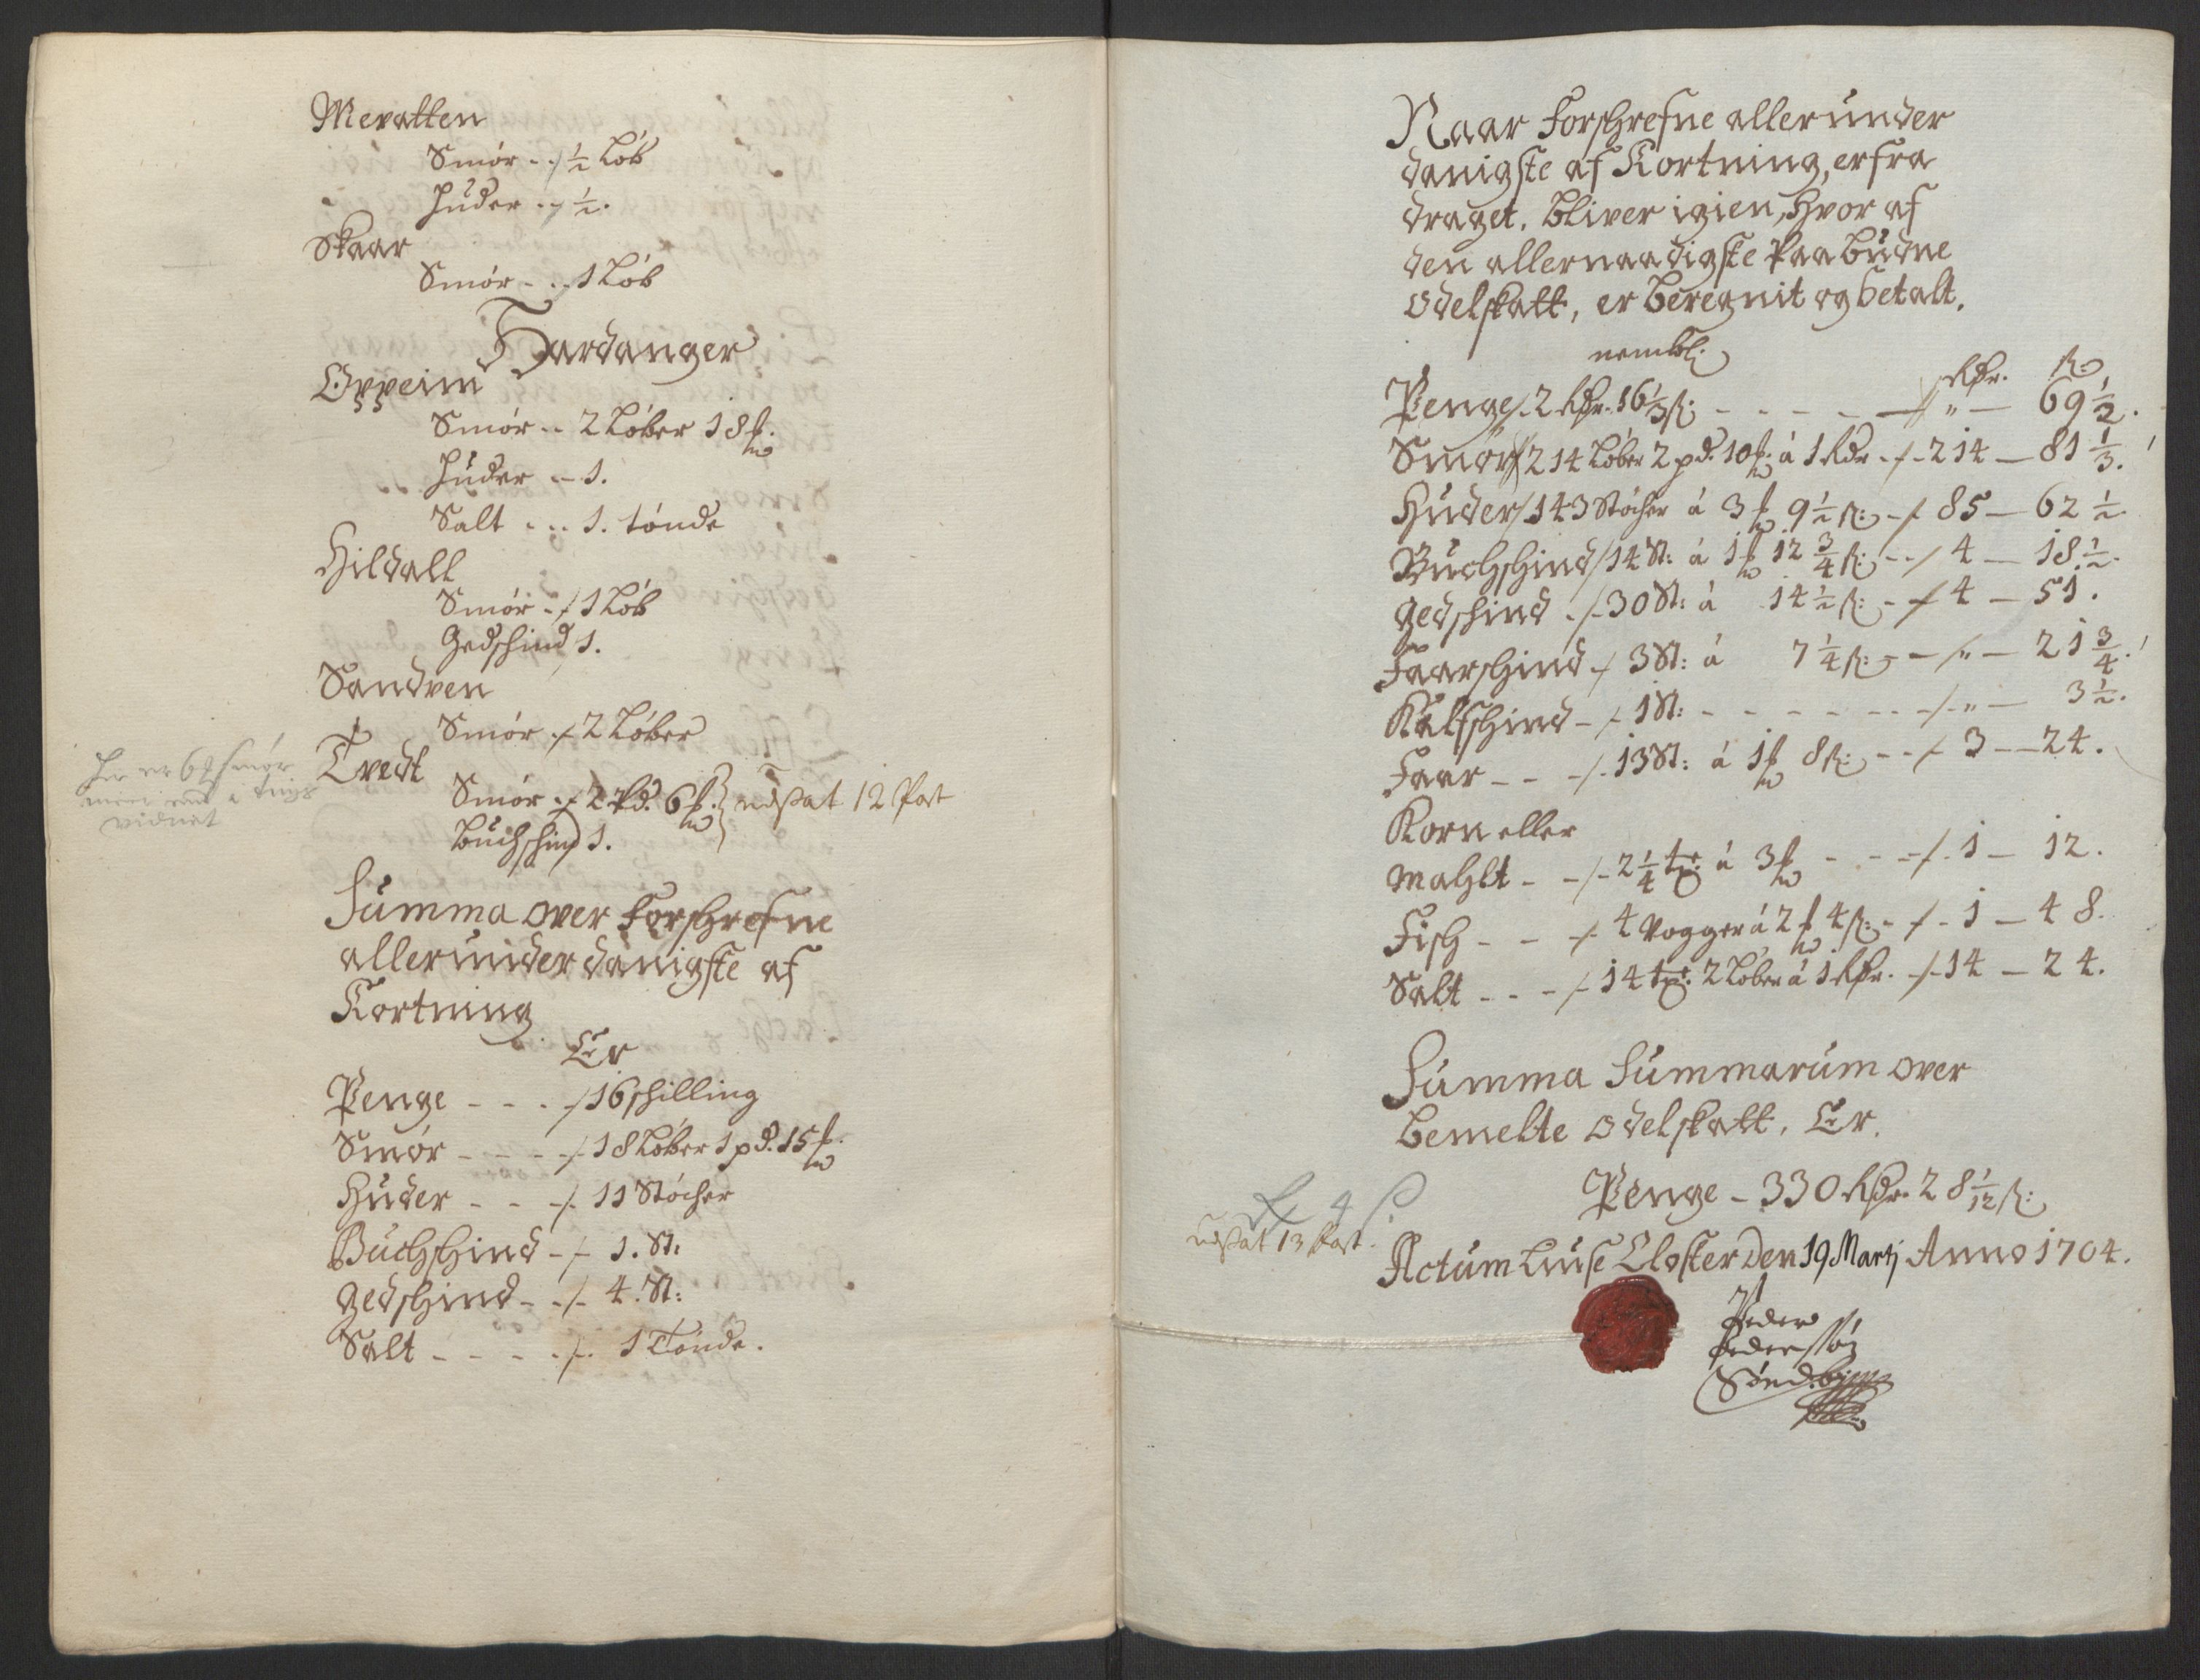 Mevatten
Smör - ⁒ ½ Löb
Huder - ⁒ ½.
Skaar
Smör - ⁒ 1 Löb
Hardanger
Oppeim
Smör - 2 Löber 18 ℔
Huder - 1.
Salt - - 1. tönde
Hildall
Smör - ⁒ 1 Löb
Gedschind 1.
Sandven
Smör ⁒ 2 Löber
Tvedt
Smör ⁒ 2 Pd. 6 ℔ udsat 12 Post
Buchschind 1.
Her er 6 ℔ smör
meer end i tings
vidnet
Summa over Forschrefne
allerunderdanigste af
Kortning
Er
Penge - - - ⁒ 16 schilling
Smör - - - ⁒ 18 Löber 1 pd. 15 ℔
Huder - - ⁒ 11 Stöcher
Buchschind - ⁒ 1. St:
gedschind - ⁒ 4. St:
Salt - - - ⁒ 1 Tönde.
Naar Forschrefne allerunder
danigste af Kortning, er fra
draget. bliver igien, hvor af
den allernaadigste Paabudne
odelskatt, er beregnit og betalt.
nembl:
Rdr. ß
Penge ⁒ 2 Rdr. 16⅓ ß: - - - - ⁒ " — 69½.
Smör ⁒ 214 Löber 2 pd. 10 ℔ á 1 Rdr - ⁒ 214 — 81⅓.
Huder ⁒ 143 Stöcher á 3 ℔ 9½ ß: - ⁒ 85 — 62½.
Buchschind ⁒ 14 St: á 1 ℔ 12¾ ß: - ⁒ 4 — 18½.
gedschind ⁒ 30 St: á 14½ ß: - ⁒ 4 — 51.
Faarschind ⁒ 3 St: á 7¼ ß: - ⁒ " — 21¾.
Kalfschind - ⁒ 1 St: - - - - - ⁒ " — 3½.
Faar - - ⁒ 13 St: á 1 ℔ 8 ß: - - ⁒ 3 — 24.
Korn eller
Mahlt - ⁒ 2¼ tr: á 3 ℔ - - - ⁒ 1 — 12.
Fisch - - ⁒ 4 Vogger á 2 ℔ 4 ß: - ⁒ 1 — 48.
Salt - - - ⁒ 14 tr: 2 Löber á 1 Rdr. - ⁒ 14 — 24.
Summa Summarum over
bemelte odelskatt, Er.
Penge - 330 Rdr. 28 1/12 ß:
udsat 13 Post.
Actum Liuse Closter den 19. Martj Anno 1704.
Peder
Pedersön